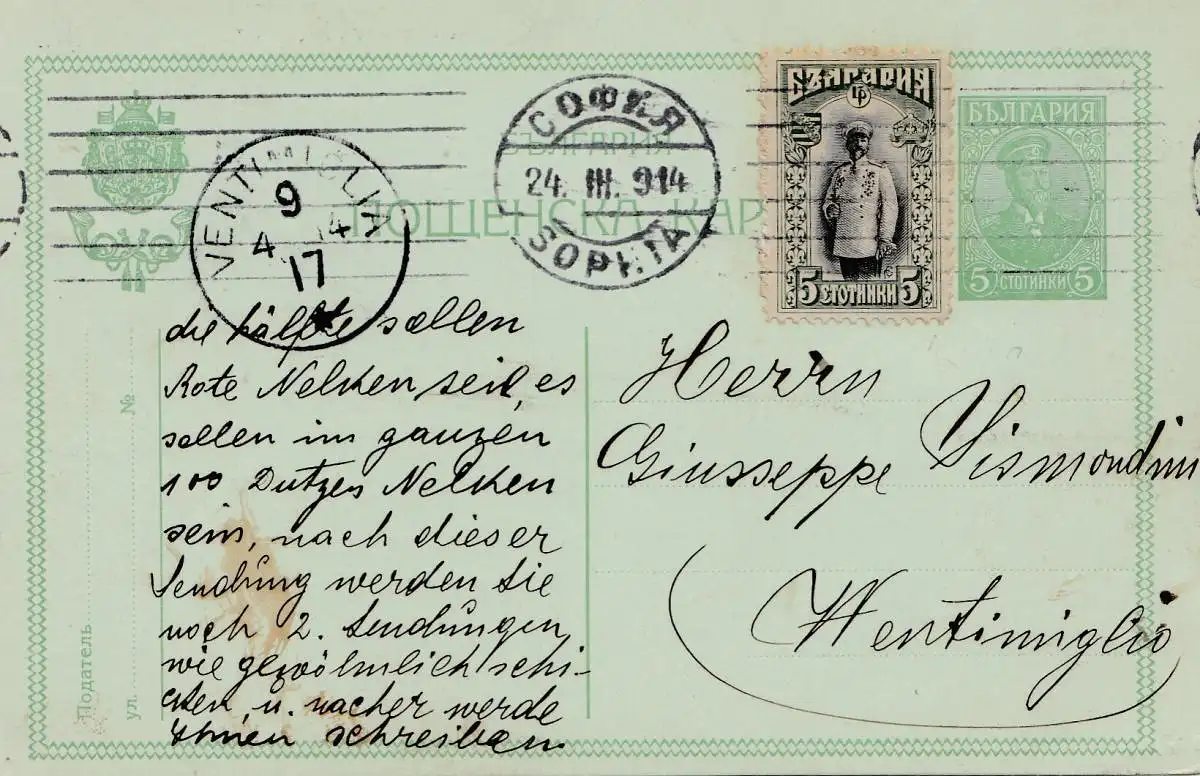 БЪЛГАРИЯ
ПОЩЕНСКА КАР
СОФИЯ
24. III. 914
SOPHIA
VENTIMIGLIA
9
4 14
17
БЪЛГАРИЯ
5 СТОТИНКИ 5
БЪЛГАРИЯ
5 СТОТИНКИ 5
die hälfte sollen
Rote Nelken sein, es
sollen im ganzen
100 Dutzes Nelken
sein, nach dieser
Sendung werden Sie
noch 2. Sendungen,
wie gewöhnlich schi-
cken, u. nacher werde
Ihnen schreiben.
Herrn
Giusseppe Vismondini
Wentimiglio
Податель
ул. №